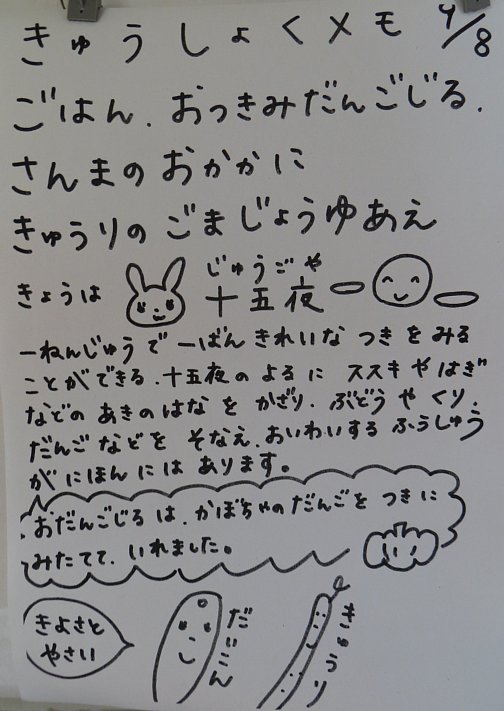 きゅうしょくメモ 9/8
ごはん.おつきみだんごじる.
さんまのおかかに
きゅうりのごまじょうゆあえ
きょうは 十五夜
じゅうごや
一ねんじゅうで一ばんきれいなつきをみる
ことができる.十五夜のよるに ススキやはぎ
などのあきのはなをかざり.ぶどうやくり.
だんごなどをそなえ.おいわいするふうしゅう
がにほんにはあります。
おだんごじるは.かぼちゃのだんごをつきに
みたてて.いれました。
きよさと
やさい
だいこん
きゅうり